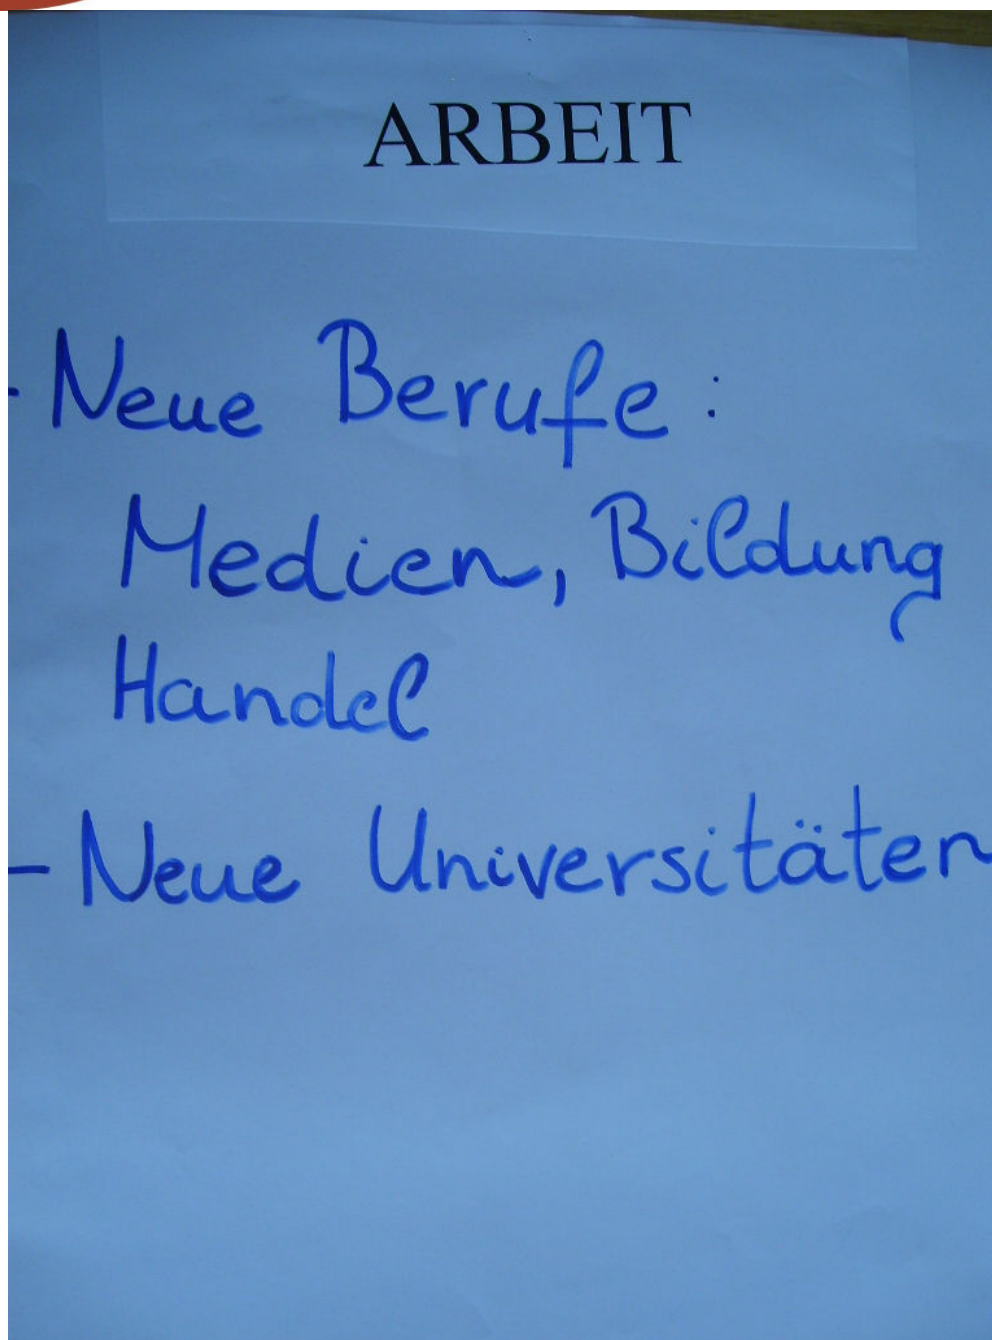 ARBEIT
- Neue Berufe:
Medien, Bildung
Handel
- Neue Universitäten